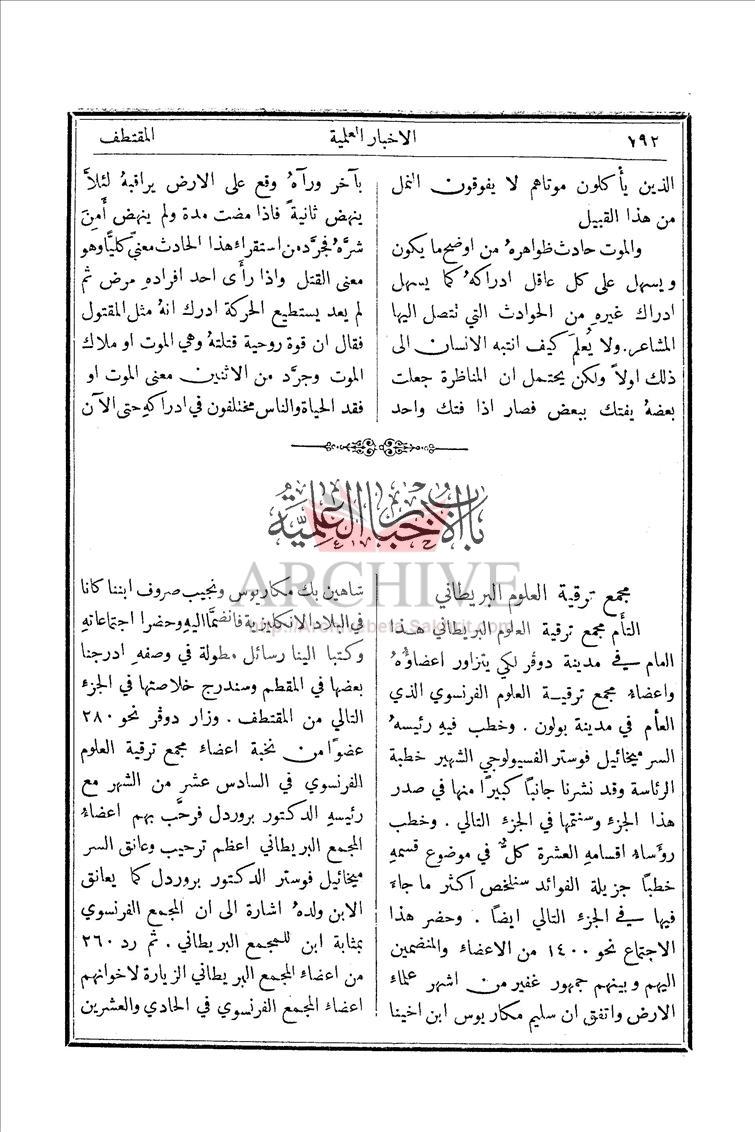 ٧٩٢ الاخبار العلمية المقتطف
الذين يأكلون موتاهم لا يفوقون النمل
من هذا القبيل
والموت حادث ظواهرهُ من اوضح ما يكون
ويسهل على كل عاقل ادراكهُ كما يسهل
ادراك غيرهِ من الحوادث التي تتصل اليها
المشاعر. ولا يُعلم كيف انتبه الانسان الى
ذلك اولاً ولكن يحتمل ان المناظرة جعلت
بعضهُ يفتك ببعض فصار اذا فتك واحد
بآخر ورآهُ وقع على الارض يراقبهُ لئلاَّ
ينهض ثانيةً فاذا مضت مدة ولم ينهض أَمِنَ
شرَّهُ فجرَّد من استقراء هذا الحادث معنىً كليًّا وهو
معنى القتل واذا رأى احد افرادهِ مرض ثم
لم يعد يستطيع الحركة ادرك انهُ مثل المقتول
فقال ان قوة روحية قتلتهُ وهي الموت او ملاك
الموت وجرَّد من الاثنين معنى الموت او
فقد الحياة والناس مختلفون في ادراكهِ حتى الآن
باب الاخبار العلمية
ARCHIVE
http://Archivebeta.Sakhrit.com
مجمع ترقية العلوم البريطاني
التأم مجمع ترقية العلوم البريطاني هذا
العام في مدينة دوڤر لكي يتزاور اعضاؤُهُ
واعضاء مجمع ترقية العلوم الفرنسوي الذي
التأم في مدينة بولون . وخطب فيهِ رئيسهُ
السر ميخائيل فوستر الفسيولوجي الشهير خطبة
الرئاسة وقد نشرنا جانبًا كبيرًا منها في صدر
هذا الجزء وسنتمها في الجزء التالي . وخطب
رؤساء اقسامهِ العشرة كلٌّ في موضوع قسمهِ
خطبًا جزيلة الفوائد سنلخص اكثر ما جاءَ
فيها في الجزء التالي ايضًا . وحضر هذا
الاجتماع نحو ١٤٠٠ من الاعضاء والمنضمين
اليهم وبينهم جمهور غفير من اشهر علماء
الارض واتفق ان سليم مكاريوس ابن اخينا
شاهين بك مكاريوس ونجيب صروف ابننا كانا
في البلاد الانكليزية فانضمَّا اليهِ وحضرا اجتماعاتهِ
وكتبا الينا رسائل مطولة في وصفهِ ادرجنا
بعضها في المقطم وسندرج خلاصتها في الجزء
التالي من المقتطف . وزار دوڤر نحو ٢٨٠
عضوًا من نخبة اعضاء مجمع ترقية العلوم
الفرنسوي في السادس عشر من الشهر مع
رئيسهِ الدكتور بروردل فرحَّب بهم اعضاء
المجمع البريطاني اعظم ترحيب وعانق السر
ميخائيل فوستر الدكتور بروردل كما يعانق
الابن ولدهُ اشارة الى ان المجمع الفرنسوي
بمثابة ابن للمجمع البريطاني . ثم رد ٢٦٠
من اعضاء المجمع البريطاني الزيارة لاخوانهم
اعضاء المجمع الفرنسوي في الحادي والعشرين